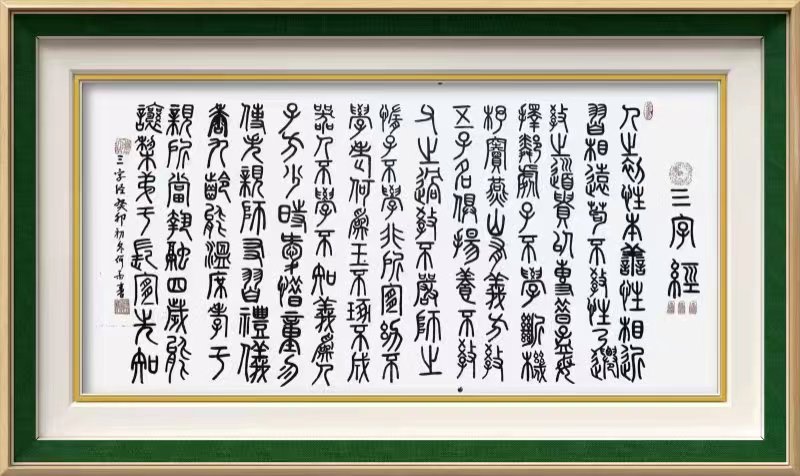 三字經
人之初性本善性相近
習相遠苟不教性乃遷
教之道貴以專昔孟母
擇鄰處子不學斷機
杼竇燕山有義方教
五子名俱揚養不教
父之過教不嚴師之
惰子不學非所宜幼不
學老何為玉不琢不成
器人不學不知義為人
子方少時惜童勿
親師友習禮儀
香九齡能溫席孝于
親所當執融四歲能
讓梨弟于長宜先知
三字經癸卯初冬何書